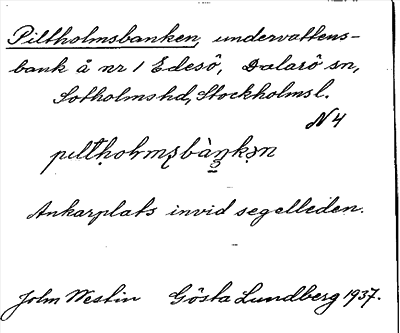 Piltholmsbanken, undervattens-
bank å nr 1 Edesö, Dalarö sn,
Sotholms hd, Stockholms l.
N4
Ankarplats invid segelleden.
John Westin Gösta Lundberg 1937.